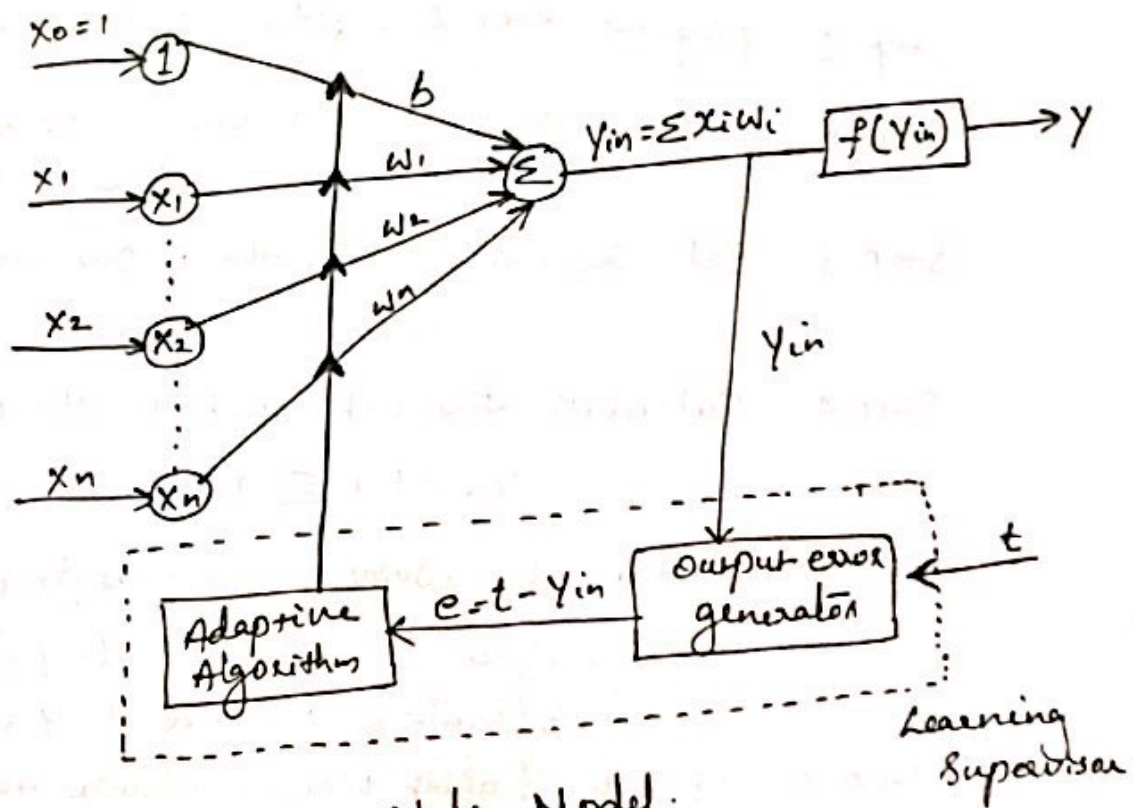 x0=1
1
b
x1
x1
w1
Σ
Yin=Σxiwi
f(Yin)
y
w2
x2
x2
wn
Yin
xn
xn
t
Output error
generator
e=t-Yin
Adaptive
Algorithm
Learning
Supervisor
Model.